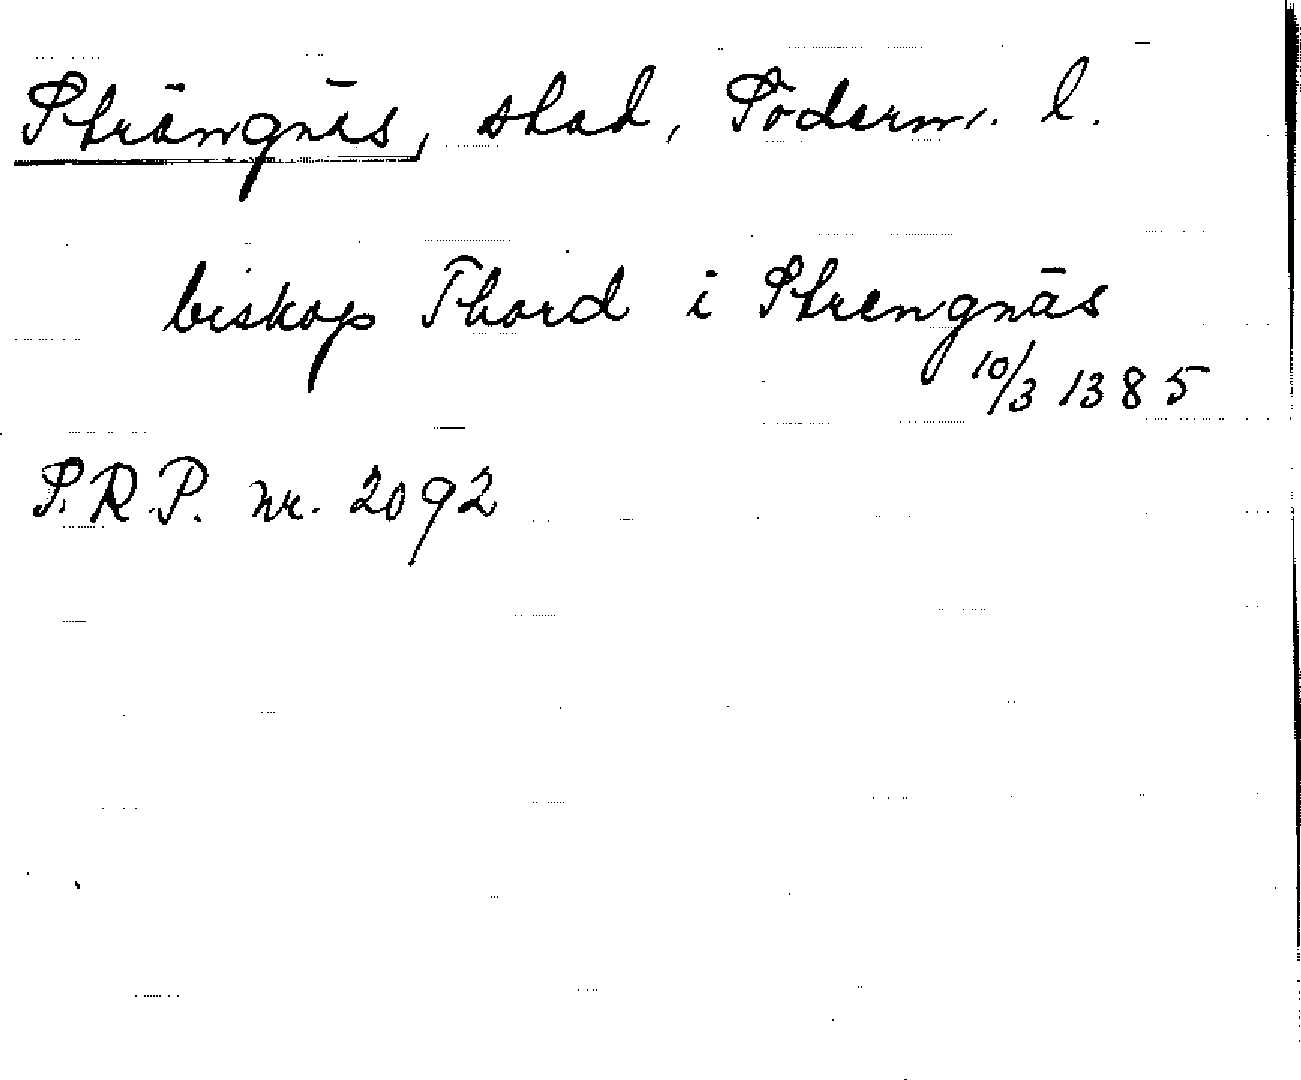 Strängnäs, stad, Söderm. l.
biskop Thord i Strengnäs
10/3 1385
S.R.P. nr. 2092